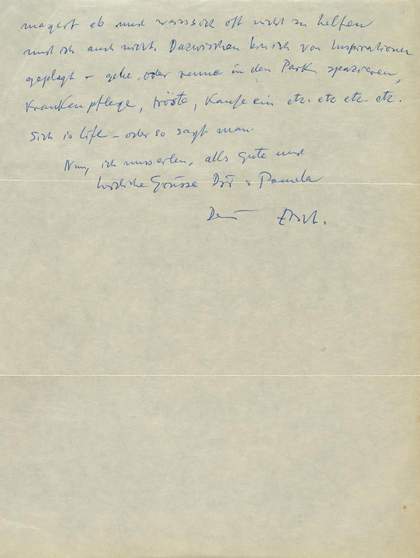 magert ab und weiss sich oft nicht zu helfen
und ich auch nicht. Dazwischen bin ich von Inspirationen
geplagt – gehe oder renne in den Park spazieren,
Krankenpflege, tröste, Kaufe ein etc. etc. etc. etc.
Sich is life – oder so sagt man.
Nun, ich muss enden, alles gute und
herzliche Grüsse Dir + Pamela
Dein